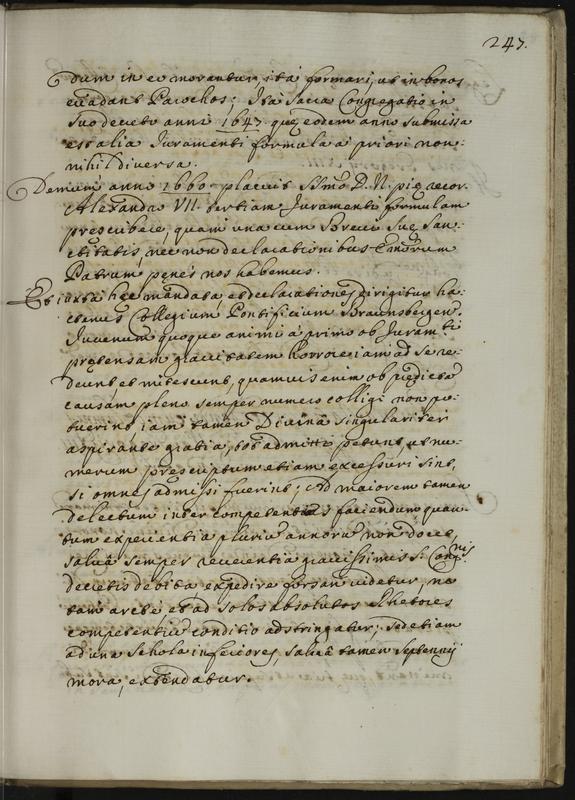 247.
dum in eo morantur, ità formari, ut in bonos
euadant Parochos; Ita Sacra Congregatio in
suo decreto anni 1647. quo eodem anno submissa
est alia Juramenti formula à priori non-
nihil diuersa.
Demum anno 1660. placuit SSmo D. N. pię recor.
Alexandro VII. tertiam Juramenti formulam
pręscribere, quam una cum Breui Suę San-
ctitatis, nec non declarationibus Emorum
Patrum penès nos habemus.
Et iuxta hęc mandata et declarationes dirigitur ha-
ctenus Collegium Pontificium Braunsbergen.
Juuenum quoque animi à primo ob Juramti
pręhensam grauitatem horrore iam ad se re-
deunt, et mitescunt, quamuis enim ob prędictam
causam pleno semper numero colligi non po-
tuerint, iam tamen Diuinâ singulariter
aspirante gratia, tot admitti petunt, ut nu-
merum pręscriptum etiam excessuri sint,
si omnes admissi fuerint; Ad maiorem tamen
delectum inter competentes faciendum quan-
tum experientia pluriũ annorũ non docet,
saluâ semper reuerentia grauissimis S. Congnis
decretis debita expedire forsan uidetur, ne
tam arcte et ad solos absolutos Rhetores
competentiũ conditio adstringatur; sed etiam
ad una Schola inferiores, saluâ tamen Septennij
mora, extendatur.